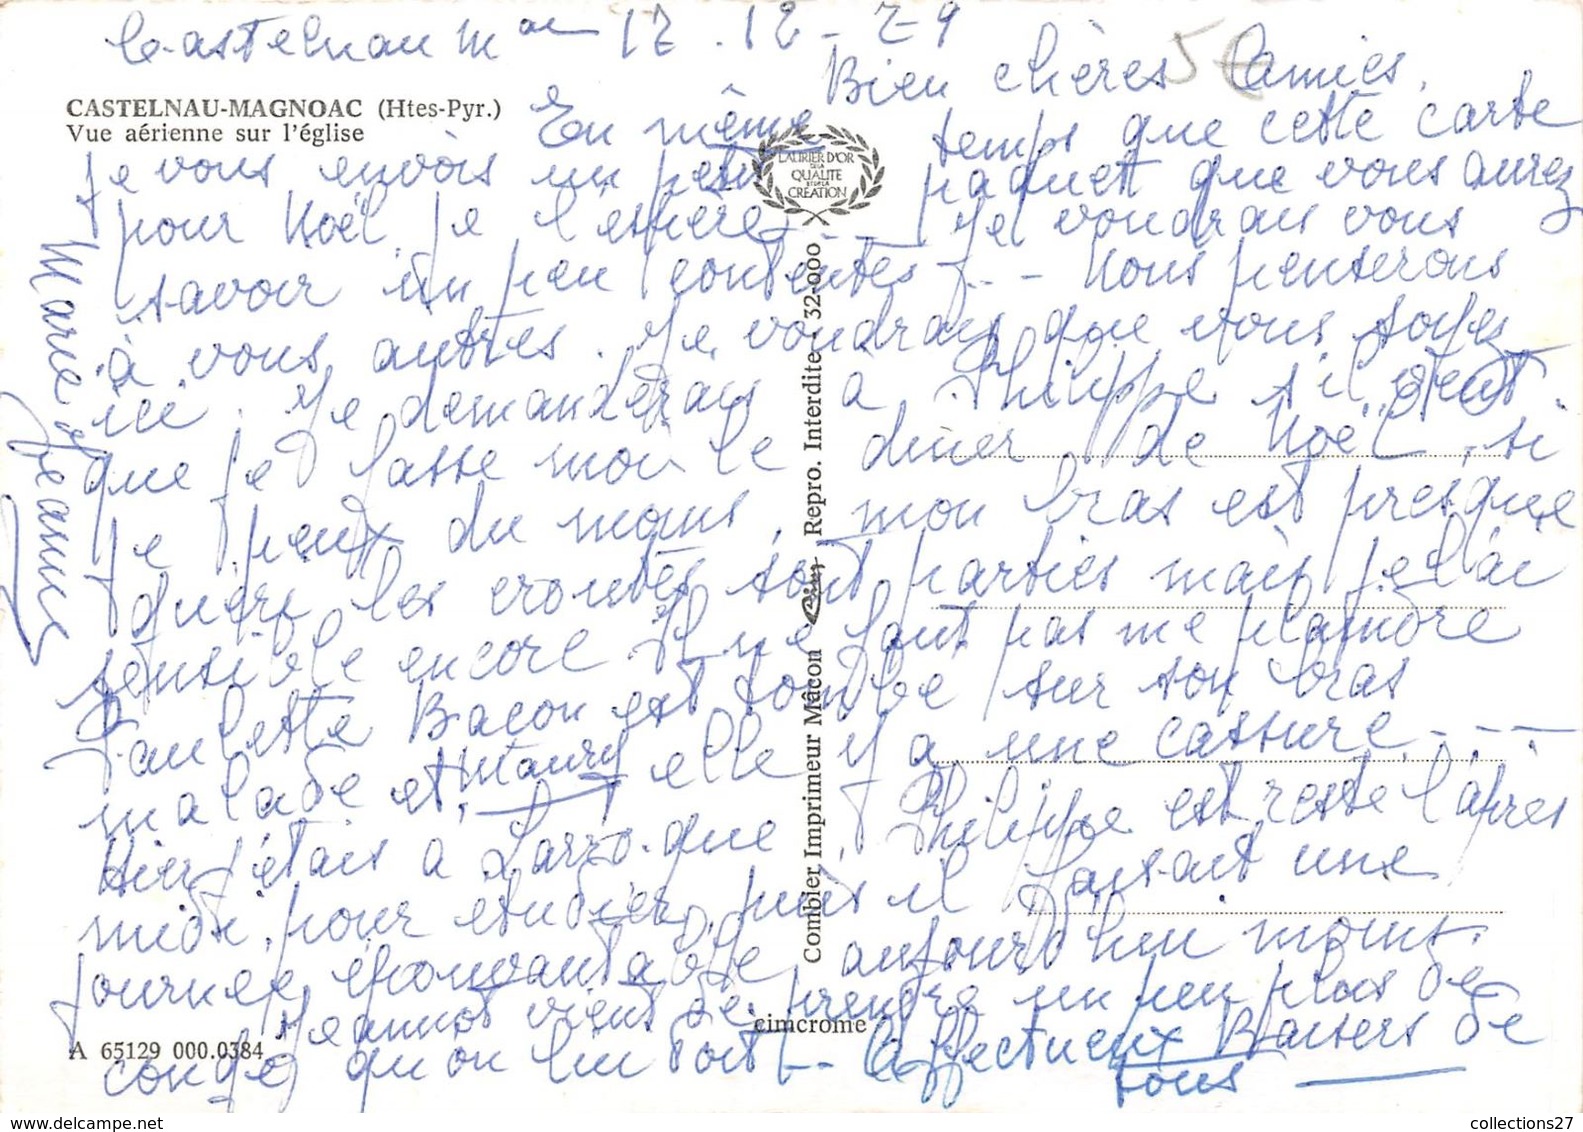 Castelnau Mac 17.12-79
Bien chères amies,
5€
CASTELNAU-MAGNOAC (Htes-Pyr.)
Vue aérienne sur l'église
LAURIER D'OR DE LA QUALITE ET DE LA CREATION
En même temps que cette carte
je vous envois un petit paquet que vous aurez
pour Noël, je l'espère -- Je voudrais vous
savoir un peu contentes -- Nous penserons
à vous autres. Je voudrais que vous soyez
ici. Je demanderais à Philippe s'il veut
que je fasse moi le dîner de Noël, si
je peux du moins, mon bras est presque
guéri les croutes sont parties mais je l'ai
sensible encore Il ne faut pas me plaindre
Paulette Bacon est tombée sur son bras
malade et elle y a une cassure ---
Hier j'étais à Larroque, Philippe est resté l'après
midi, pour etudier, puis il faisait une
journée épouvantable, aujourd'hui moins.
Jeannot vient de prendre un peu plus de
congé qu'on lui doit -- Affectueux Baisers de
tous
Marie Jeanne
Combier Imprimeur Mâcon Cim Repro. Interdite - 32-000
cimcrome
A 65129 000.0384
collections27